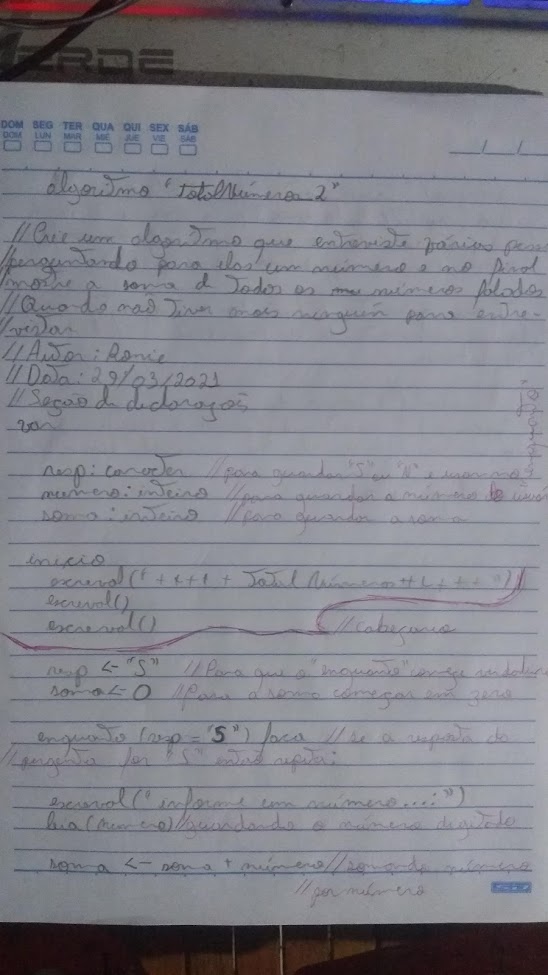 ERDE
DOM SEG TER QUA QUI SEX SÁB
DOM LUN MAR MIE JUE VIE SAB
algoritmo "TotalNúmeros 2"
// Crie um algoritmo que entreviste várias
// perguntando para elas um número e no final
mostre a soma de todos os números
// Quando não tiver mais ninguém para entre-
// vistar
// Autor: Ronie
// Data: 29/03/2021
// Seção de declarações
var
resp: caracter // para guardar "S" ou "N" e
numero: inteiro // para guardar o número do
soma: inteiro // para guardar a soma
inicio
escreval("+ + + + Total Números + + + + ")
escreval()
escreval() // cabeçario
resp <- "S" // Para que o "enquanto" comece
soma <- 0 // Para a soma começar em zero
enquanto (resp = "S") faca // se a resposta da
// pergunta for "S" entao repita:
escreval("informe um número...:")
leia(numero) // guardando o número digitado
soma <- soma + número // somando número
// por número